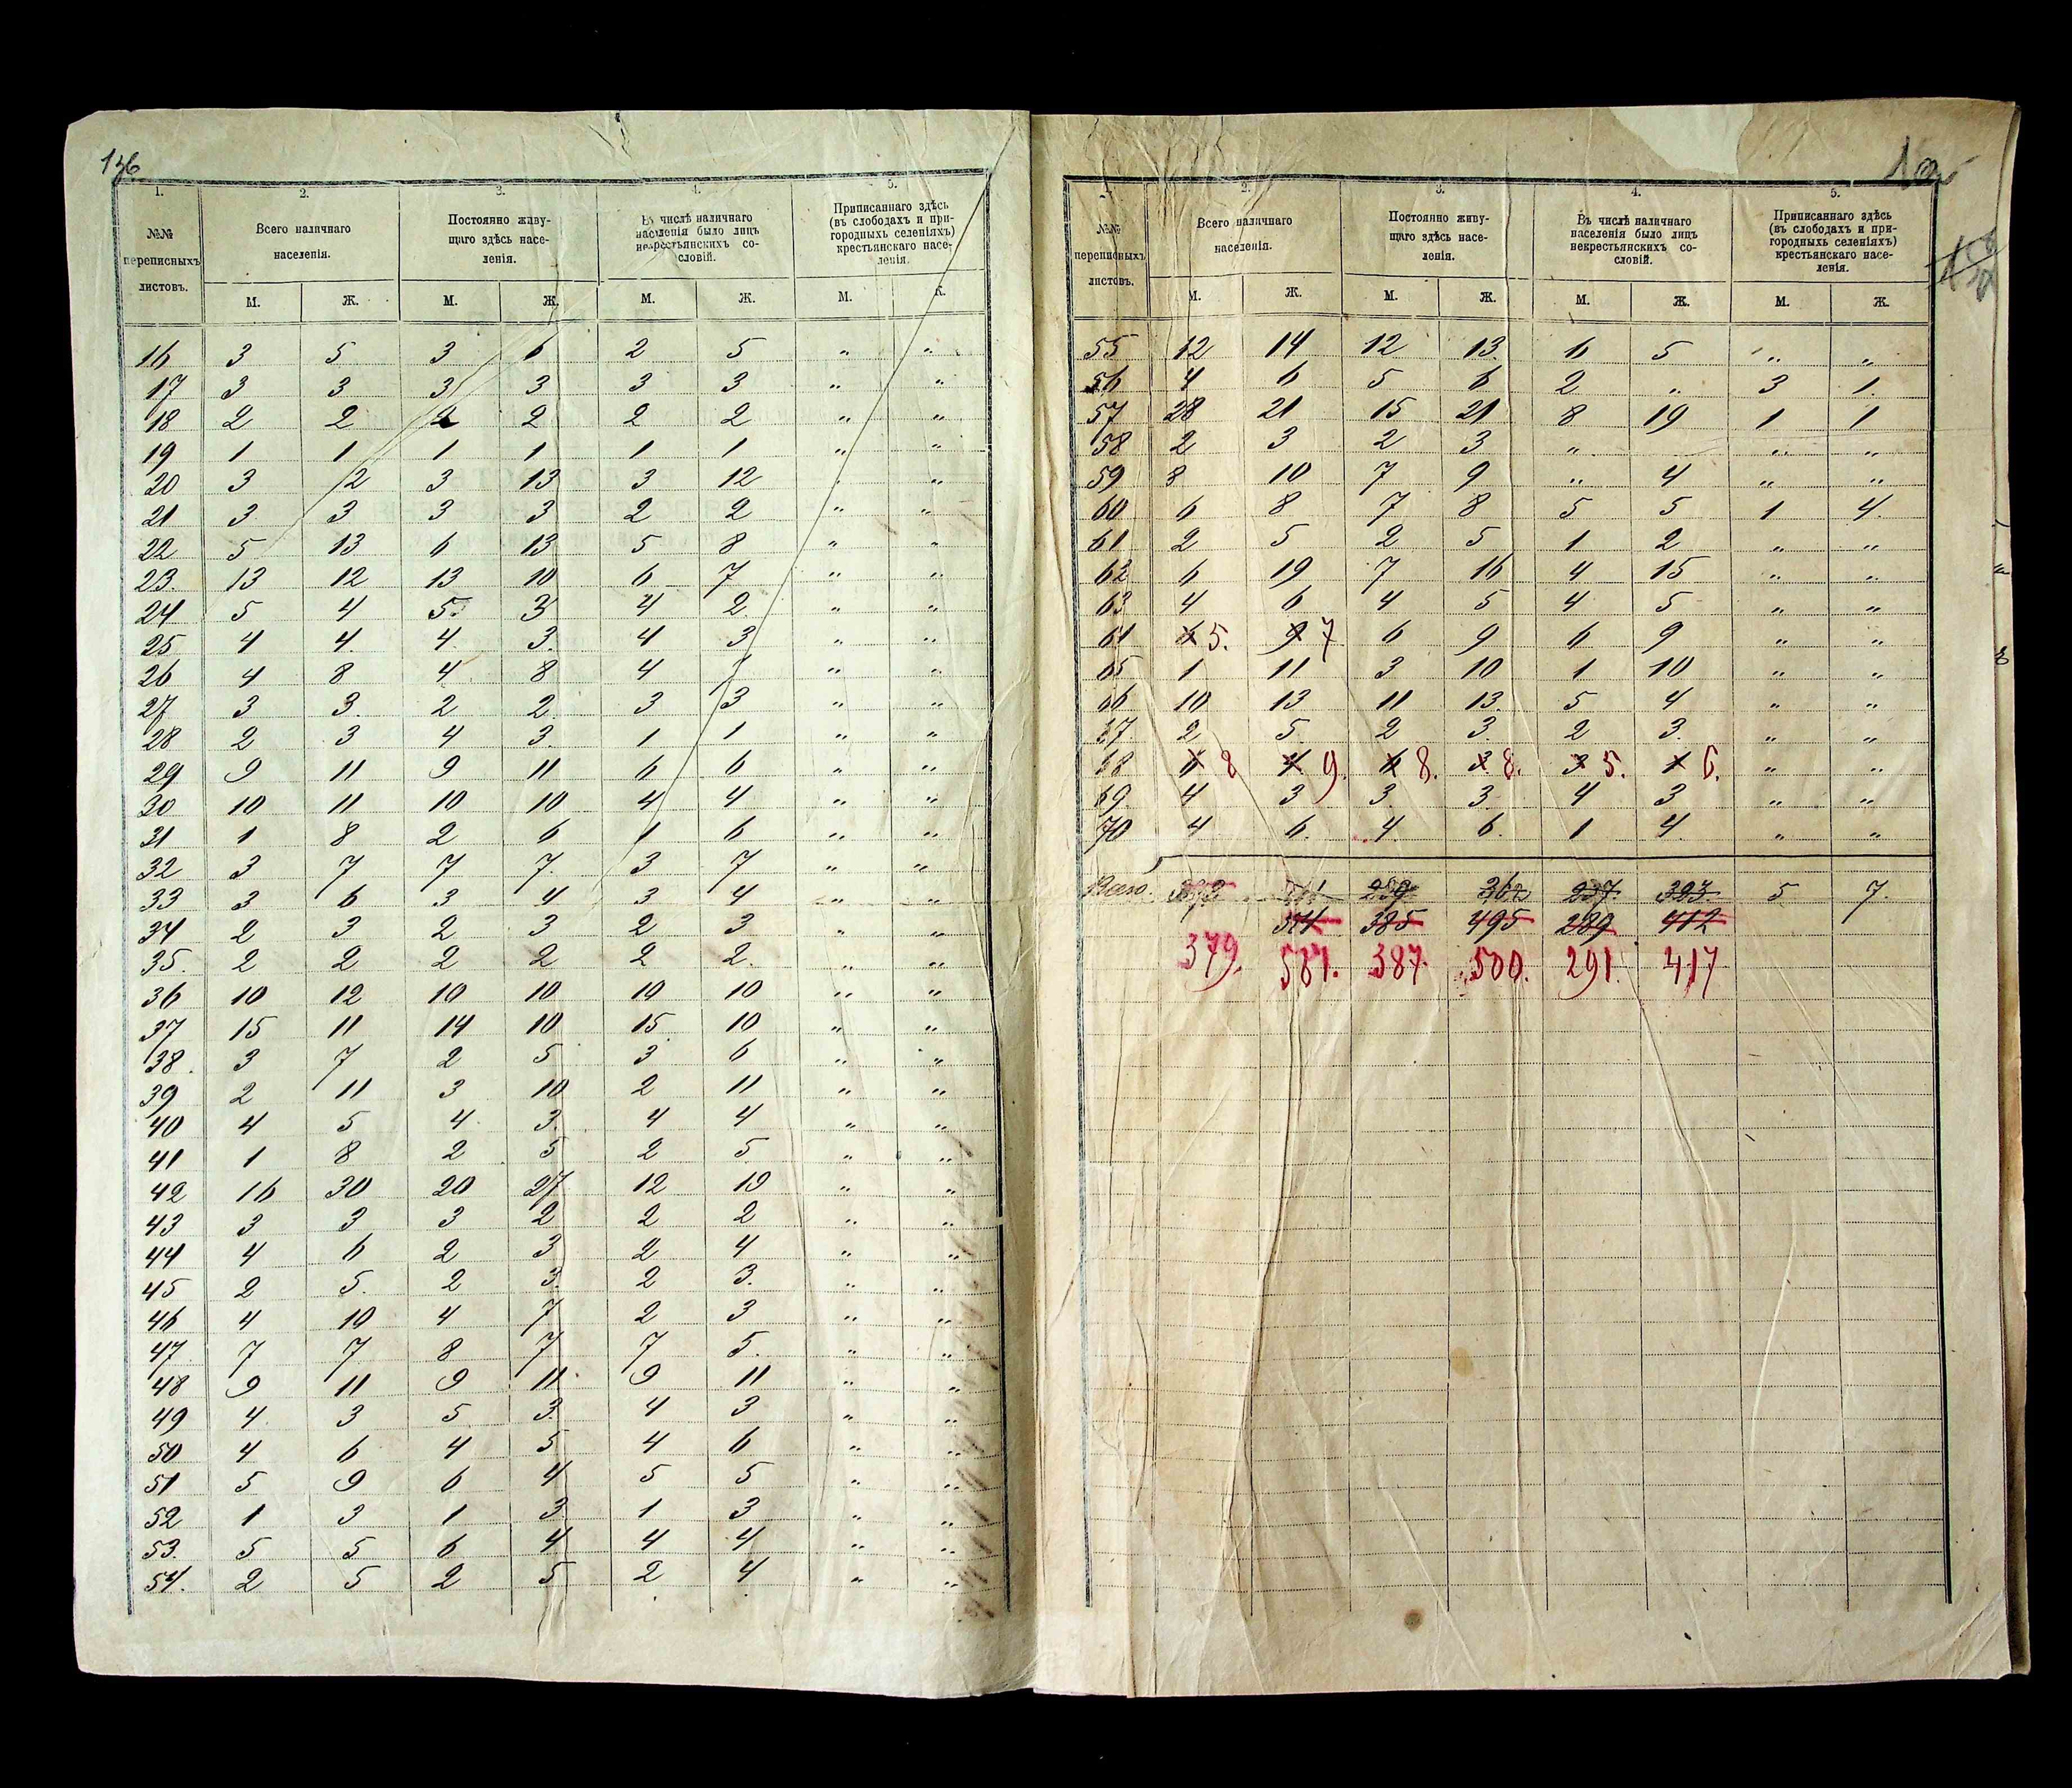 136
1. 2. 3. 4. 5.
№№ переписныхъ листовъ.
Всего наличнаго населенія.
Постоянно живу-
щаго здѣсь насе-
ленія.
Въ числѣ наличнаго
населенія было лицъ
некрестьянскихъ со-
словій.
Приписаннаго здѣсь
(въ слободахъ и при-
городныхъ селеніяхъ)
крестьянскаго насе-
ленія.
М. Ж. М. Ж. М. Ж. М. Ж.
16 3 5 3 6 2 5 " "
17 3 3 3 3 3 3 " "
18 2 2 2 2 2 2 " "
19 1 1 1 1 1 1 " "
20 3 12 3 13 3 12 " "
21 3 3 3 3 2 2 " "
22 5 13 6 13 5 8 " "
23. 13 12 13 10 6 7 " "
24 5 4 5. 3 4 2 " "
25 4 4. 4. 3. 4 3 " "
26 4 8 4 8 4 " "
27 3 3. 2 2. 3 3 " "
28 2 3 4 3. 1 1 " "
29 9 11 9 11 6 6 " "
30 10 11 10 10 4 4 " "
31 1 8 2 6 1 6 " "
32 3 7 7 7. 3 7 " "
33 3 6 3 4 3 4 " "
34 2 3 2 3 2 3 " "
35. 2 2 2 2 2 2. " "
36 10 12 10 10 10 10 " "
37 15 11 14 10 15 10 " "
38. 3 7 2 5 3 6 " "
39 2 11 3 10 2 11 " "
40 4 5 4 3. 4 4 " "
41 1 8 2 5 2 5 " "
42 16 30 20 27 12 19 " "
43 3 3 3 2 2 2 " "
44 4 6 2 3 2 4 " "
45 2 5. 2 3. 2 3. " "
46 4 10 4 7 2 3 " "
47 7 7 8 7 7 5. " "
48 9 11 9 11. 9 11 " "
49 4. 3 5 3. 4 3 " "
50 4 6 4 5 4 6 " "
51 5 9 6 4 5 5 " "
52 1 3 1 3 1 3 " "
53. 5 5 6 4 4 4 " "
54. 2 5 2 5 2 4 " "
2. 3. 4. 5.
№№ переписныхъ листовъ.
Всего наличнаго населенія.
Постоянно живу-
щаго здѣсь насе-
ленія.
Въ числѣ наличнаго
населенія было лицъ
некрестьянскихъ со-
словій.
Приписаннаго здѣсь
(въ слободахъ и при-
городныхъ селеніяхъ)
крестьянскаго насе-
ленія.
М. Ж. М. Ж. М. Ж. М. Ж.
55 12 14 12 13 6 5 " "
56 4 6 5 6 2 " 3 1.
57 28 21 15 21 8 19 1 1
58 2 3 2 3 " " " "
59 8 10 7 9 " 4 " "
60 6 8 7 8 5 5 1 4.
61 2 5 2 5 1 2 " "
62 6 19 7 16 4 15 " "
63 4 6 4 5 4 5 " "
64 6 5. 9 7 6 9 6 9 " "
65 1 11 3 10 1 10 " "
66 10 13 11 13. 5 4 " "
67 2 5. 2 3. 2 3. " "
68 8 9. 8. 3 8. 3 5. 6. " "
69 4 3 3. 3. 4 3 " "
70 4 6. 4 6. 1 4. " "
Всего. 362 237. 5 7.
385 495 289 412
379. 581. 387. 500. 291. 417